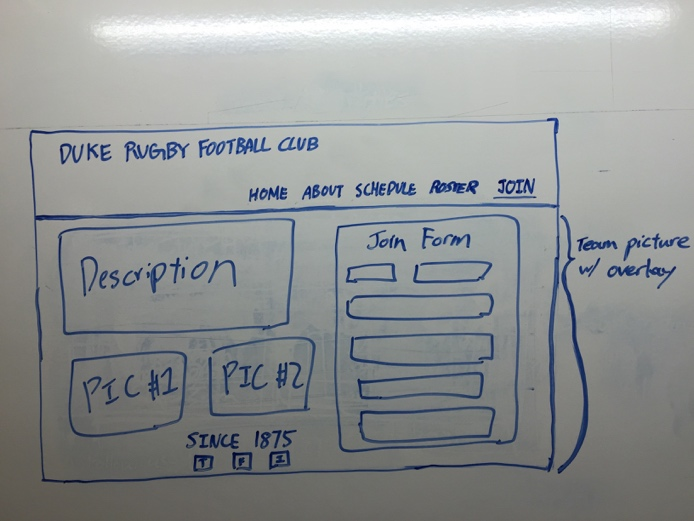 DUKE RUGBY FOOTBALL CLUB
HOME ABOUT SCHEDULE ROSTER JOIN
Description
PIC #1
PIC #2
SINCE 1875
T F I
Join Form
Team picture
w/ overlay